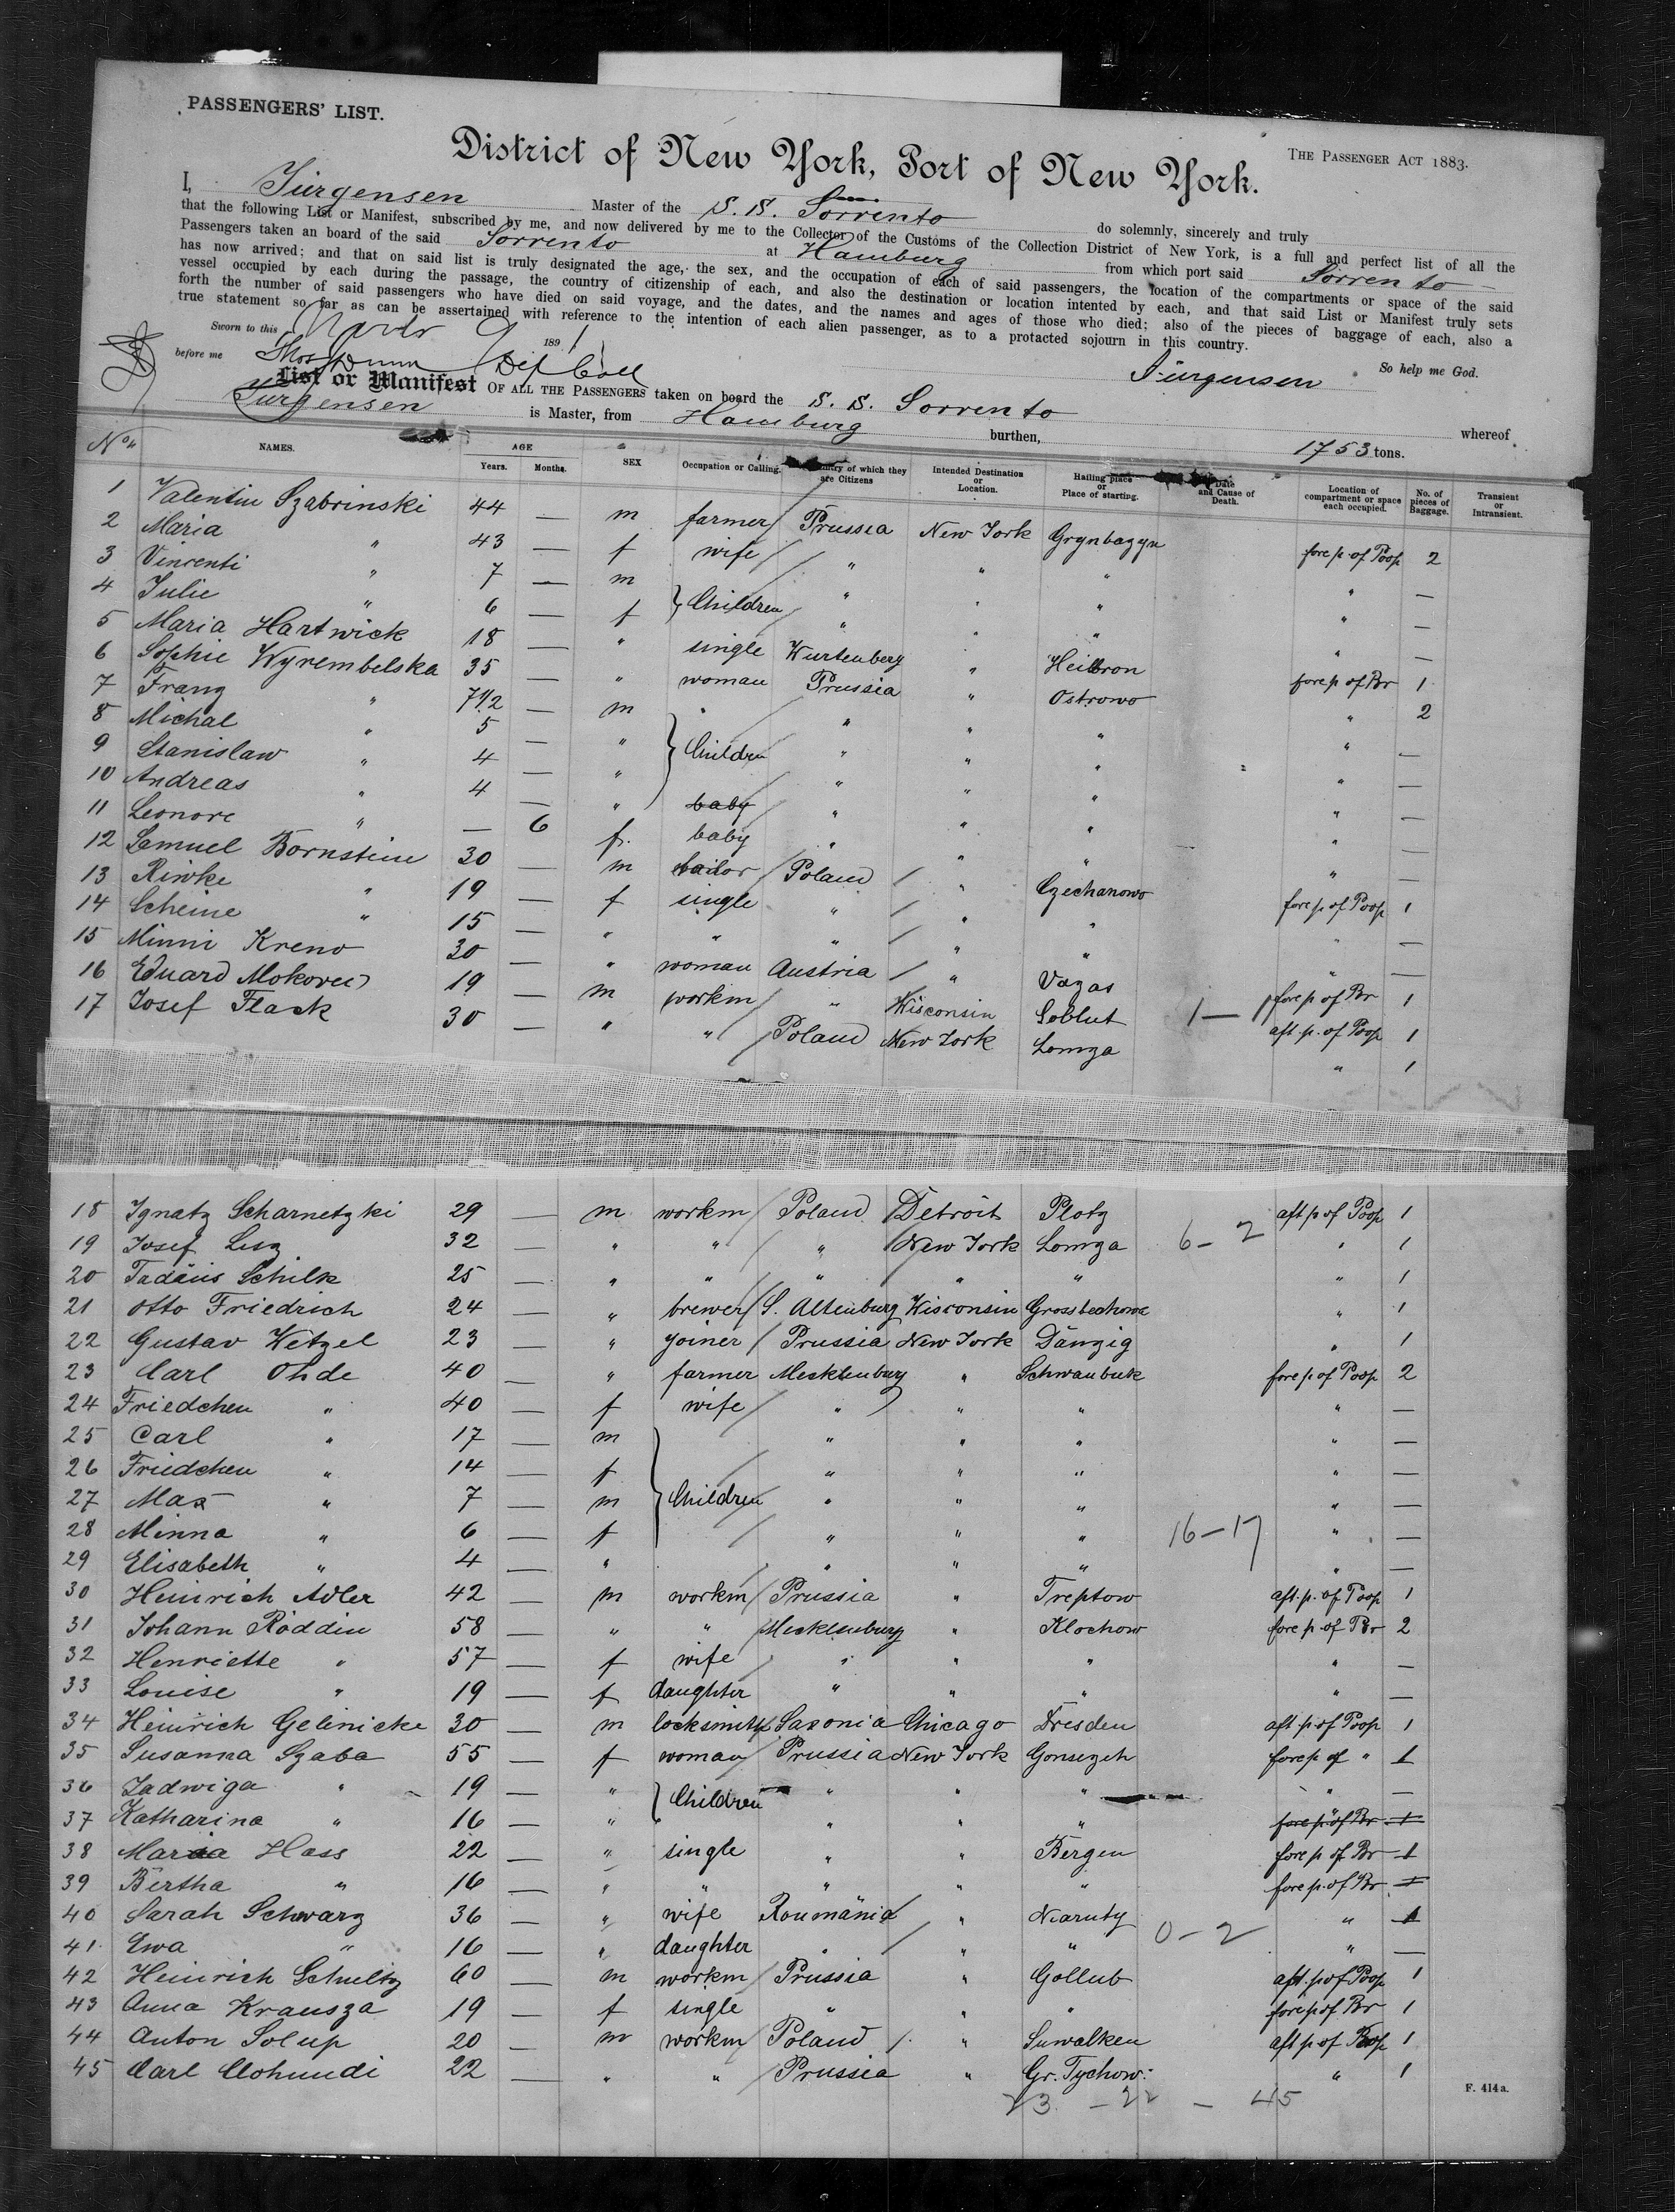 PASSENGERS' LIST.
THE PASSENGER ACT 1883.
District of New York, Port of New York.
I, Jürgensen Master of the S. S. Sorrento do solemnly, sincerely and truly
that the following List or Manifest, subscribed by me, and now delivered by me to the Collector of the Customs of the Collection District of New York, is a full and perfect list of all the
Passengers taken an board of the said Sorrento at Hamburg from which port said Sorrento
has now arrived; and that on said list is truly designated the age, the sex, and the occupation of each of said passengers, the location of the compartments or space of the said
vessel occupied by each during the passage, the country of citizenship of each, and also the destination or location intented by each, and that said List or Manifest truly sets
forth the number of said passengers who have died on said voyage, and the dates, and the names and ages of those who died; also of the pieces of baggage of each, also a
true statement so far as can be ascertained with reference to the intention of each alien passenger, as to a protacted sojourn in this country.
Sworn to this 9 1891 So help me God.
before me Dep Coll Jürgensen
List or Manifest OF ALL THE PASSENGERS taken on board the S. S. Sorrento whereof
Jürgensen is Master, from Hamburg burthen, 1753 tons.
No. NAMES. AGE Years. Months. SEX Occupation or Calling. Country of which they are Citizens Intended Destination or Location. Hailing place or Place of starting. Date and Cause of Death. Location of compartment or space each occupied. No. of pieces of Baggage. Transient or Intransient.
1 Valentin Szabrinski 44 — m farmer Prussia New York Grynbazyn fore p. of Poop 2
2 Maria " 43 — f wife " " " " —
3 Vincenti " 7 — m } Children " " " " —
4 Julie " 6 — f " " " " —
5 Maria Hartwick 18 — " single Wurtenberg " Heilbron fore p of Br 1
6 Sophie Wyrembelska 35 — " woman Prussia " Ostrowo " 2
7 Franz " 7 1/2 — m } Children " " " " —
8 Michal " 5 — " " " " " —
9 Stanislaw " 4 — " " " " " —
10 Andreas " 4 — " baby " " " " —
11 Leonore " — 6 f. baby " " " " —
12 Samuel Bornstein 30 — m tailor Poland " Czechanowo fore p. of Poop 1
13 Riwke " 19 — f single " " " " —
14 Scheine " 15 — " " " " " " —
15 Minni Kreno 30 — " woman Austria " Vazas fore p. of Br 1
16 Eduard Mokovec 19 — m workm " Wisconsin Soblut 1 — 1 aft. p. of Poop 1
17 Josef Flack 30 — " " Poland New York Lomza " 1
18 Ignatz Scharnetzki 29 — m workm Poland Detroit Plotz aft p of Poop 1
19 Josef Lisz 32 — " " " New York Lomza 6 - 2 " 1
20 Tadäus Schilk 25 — " " " " " " 1
21 Otto Friedrich 24 — " brewer S. Altenburg Wisconsin Grosstechowa " 1
22 Gustav Wetzel 23 — " yoiner Prussia New York Danzig " 1
23 Carl Ohde 40 — " farmer Mecklenburg " Schwanbeck fore p of Poop 2
24 Friedchen " 40 — f wife " " " " —
25 Carl " 17 — m } Children " " " " —
26 Friedchen " 14 — f " " " " —
27 Max " 7 — m " " " " —
28 Minna " 6 — f " " " 16 - 17 " —
29 Elisabeth " 4 — " " " " " —
30 Heinrich Adler 42 — m workm Prussia " Treptow aft. p. of Poop 1
31 Johann Röddin 58 — " " Mecklenburg " Klochow fore p. of Br 2
32 Henriette " 57 — f wife " " " " —
33 Louise " 19 — f daughter " " " " —
34 Heinrich Gelinicke 30 — m locksmith Saxonia Chicago Dresden aft. p. of Poop 1
35 Susanna Szaba 55 — f woman Prussia New York Gonsezeh fore p of " 1
36 Jadwiga " 19 — " } Children " " " " —
37 Katharina " 16 — " " " " fore p. of Br 1
38 Maria Hass 22 — " single " " Bergen fore p of Br 1
39 Bertha " 16 — " " " " " fore p. of Br. 1
40 Sarah Schwarz 36 — " wife Roumänia " Niaruty " 1
41 Ewa " 16 — " daughter " " " 0 - 2 " —
42 Heinrich Schultz 60 — m workm Prussia " Gollub aft. p of Poop 1
43 Anna Krausza 19 — f single " " " fore p of Br 1
44 Anton Solup 20 — m workm Poland " Suwalken aft p of Poop 1
45 Carl Clohundi 22 — " " Prussia " Gr. Tychow. " 1
23 - 22 - 45
F. 414a.